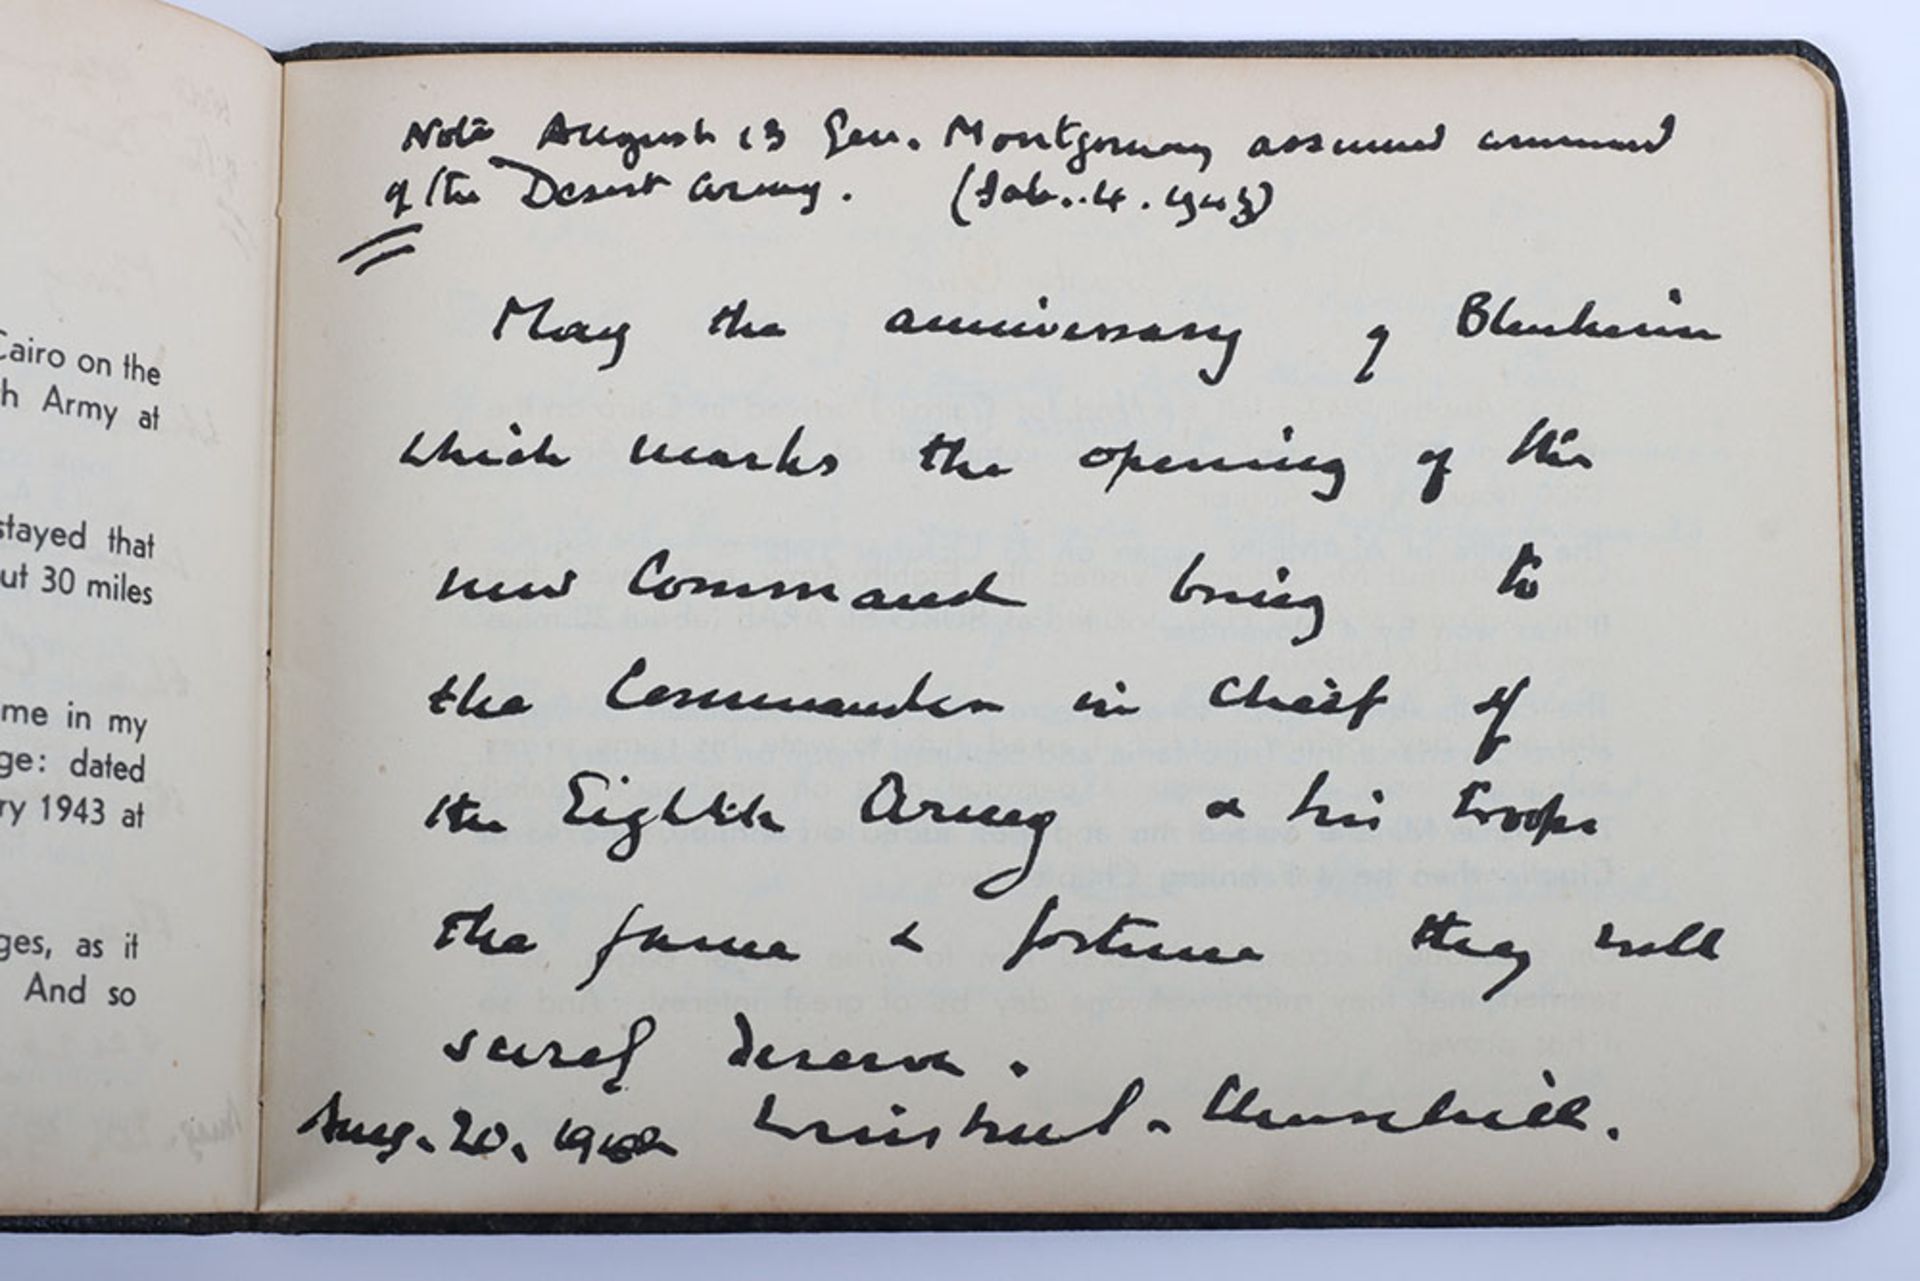 Note August 13 Gen. Montgomery assumed command
of the Desert Army. (Feb. 4. 1943)
May the anniversary of Blenheim
which marks the opening of the
new Command bring to
the Commander in Chief of
the Eighth Army & his troops
the fame & fortune they will
surely deserve.
Aug. 20. 1942 Winston S. Churchill.
Cairo on the
h Army at
stayed that
ut 30 miles
me in my
ge: dated
ry 1943 at
ges, as it
And so